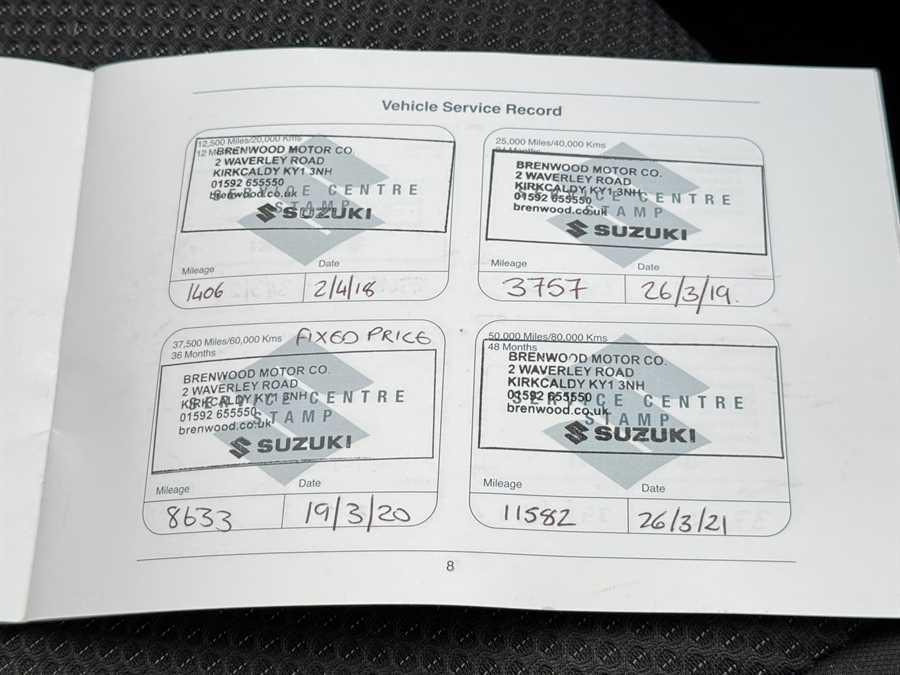 Vehicle Service Record
12,500 Miles/20,000 Kms
BRENWOOD MOTOR CO.
2 WAVERLEY ROAD
KIRKCALDY KY1 3NH
01592 655550
SERVICE CENTRE
brenwood.co.uk
STAMP
SUZUKI
Mileage Date
1406 2/4/18
25,000 Miles/40,000 Kms
24 Months
BRENWOOD MOTOR CO.
2 WAVERLEY ROAD
KIRKCALDY KY1 3NH
SERVICE CENTRE
01592 655550
brenwood.co.uk
STAMP
SUZUKI
Mileage Date
3757 26/3/19.
37,500 Miles/60,000 Kms FIXED PRICE
36 Months
BRENWOOD MOTOR CO.
2 WAVERLEY ROAD
KIRKCALDY KY1 3NH
SERVICE CENTRE
01592 655550
STAMP
brenwood.co.uk
SUZUKI
Mileage Date
8633 19/3/20
50,000 Miles/80,000 Kms
48 Months
BRENWOOD MOTOR CO.
2 WAVERLEY ROAD
KIRKCALDY KY1 3NH
01592 655550
SERVICE CENTRE
brenwood.co.uk
STAMP
SUZUKI
Mileage Date
11582 26/3/21
8